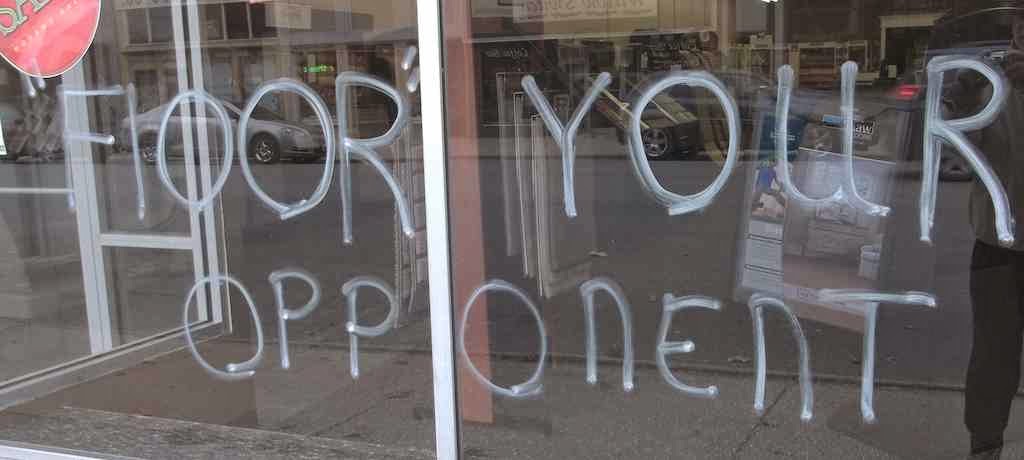 "FlOOR" YOUR
OPPONENT